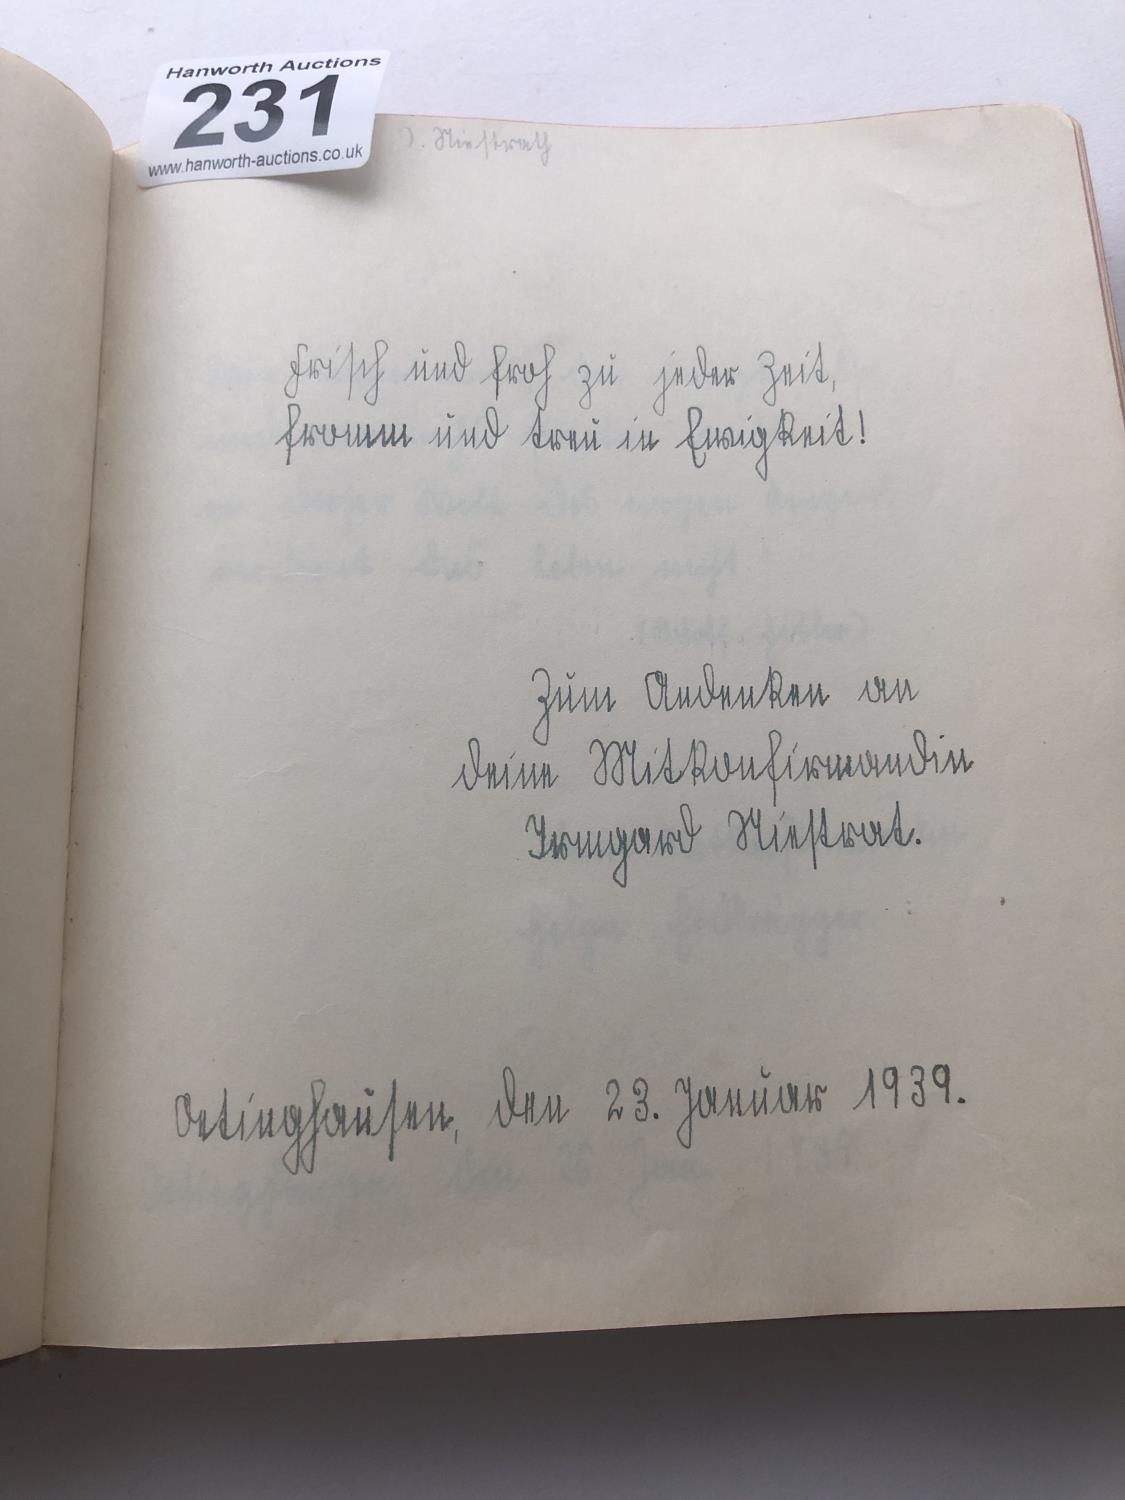 Hanworth Auctions
231
www.hanworth-auctions.co.uk
). Niestrath
Frisch und froh zu jeder Zeit,
fromm und treu in Ewigkeit!
Zum Andenken an
deine Mitkonfirmandin
Irmgard Niestrat.
Oetinghausen, den 23. Januar 1939.